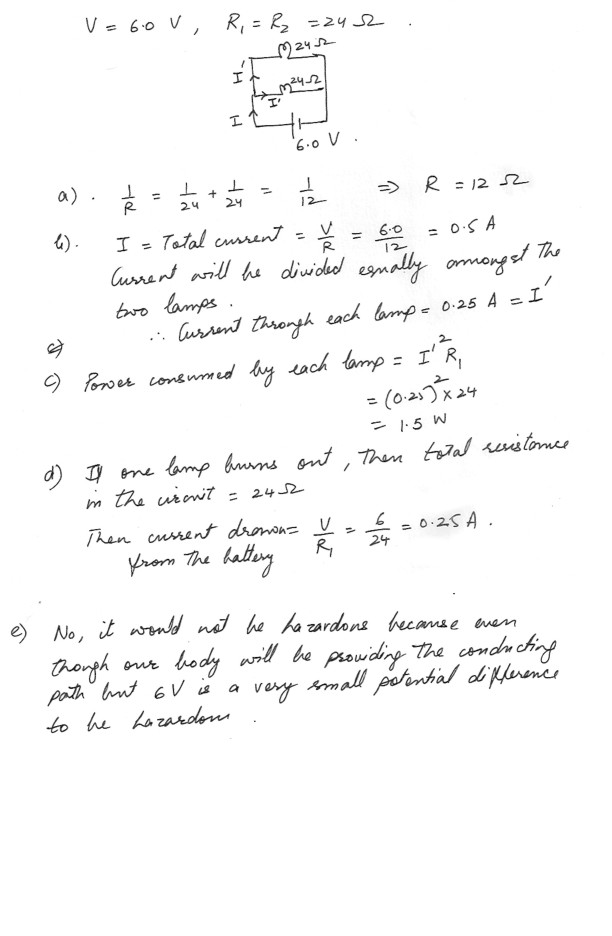 V = 6.0 V, R₁ = R₂ = 24 Ω.
24 Ω
I'
24 Ω
I'
I
6.0 V.
a). 1/R = 1/24 + 1/24 = 1/12 ⇒ R = 12 Ω
b). I = Total current = V/R = 6.0/12 = 0.5 A
Current will be divided equally amongst the
two lamps.
∴ Current through each lamp = 0.25 A = I'
c)
c) Power consumed by each lamp = I'² R₁
= (0.25)² × 24
= 1.5 W
d) If one lamp burns out, then total resistance
in the circuit = 24 Ω
Then current drawn = V/R₁ = 6/24 = 0.25 A.
from the battery
e) No, it would not be hazardous because even
though our body will be providing the conducting
path but 6V is a very small potential difference
to be hazardous.